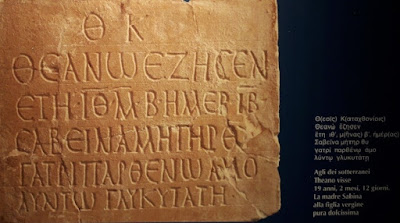 Θ Κ
ΘΕΑΝΩΕΖΗϹΕΝ
ΕΤΗ ΙΘ Μ·Β·ΗΜΕΡ ΙΒ
ϹΑΒΕΙΝΑΜΗΤΗΡΘΥ
ΓΑΤΡΙΠΑΡΘΕΝΩΑΜΟ
ΛΥΝΤΩΓΛΥΚΥΤΑΤΗ
Θ(εοῖς) Κ(αταχθονίοις)
Θεανὼ ἔζησεν
ἔτη ιθ', μ(ῆνας) β',
Σαβεῖνα μήτηρ θυ
γατρὶ παρθένῳ ἀμο
λύντῳ γλυκυτάτῃ
Agli dei sotterranei
Theano visse
19 anni, 2 mesi, 12 giorni.
La madre Sabina
alla figlia vergine
pura dolcissima